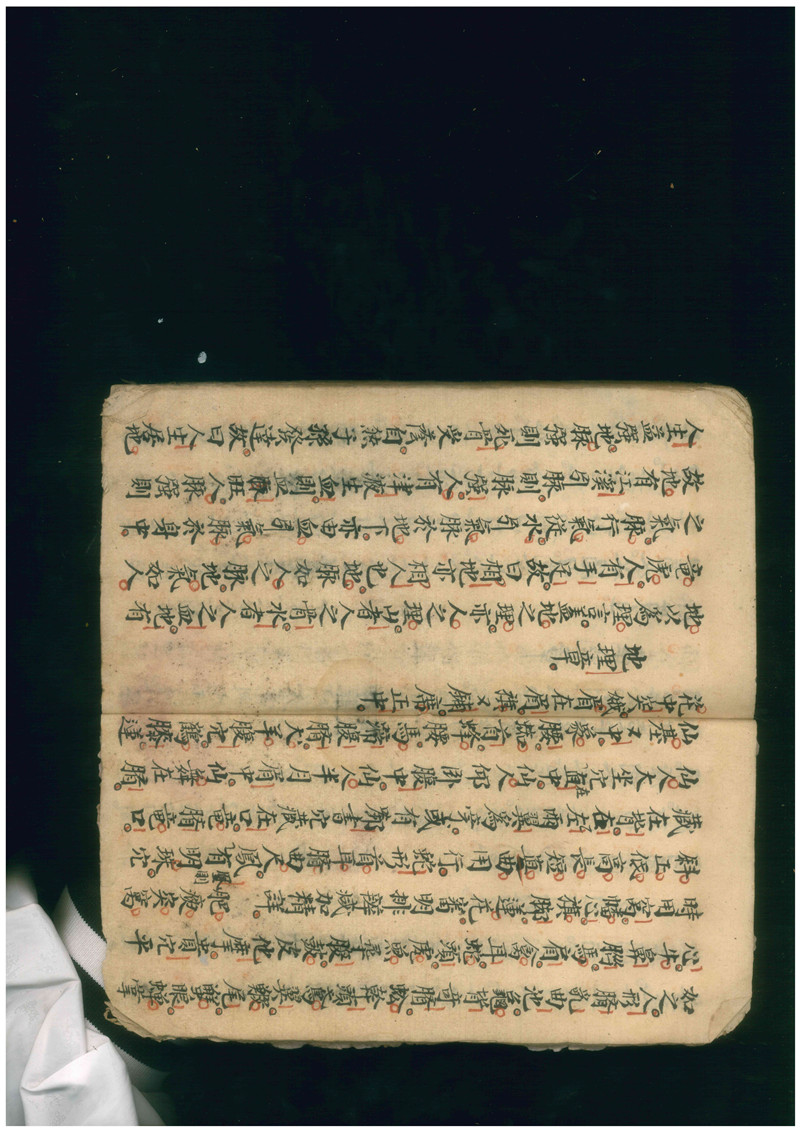 如之人形臍亂曲池龜背奇臍蚣幹頭鳶翼鰕尾蟹眼蟬掌
心牛鼻腦馬肩禽耳蛇頭虎煞尋腹鼓皮他摩貴穴平
時用窩幡心旗腳蓮花審明排辨咸加精詳肥瘦突窩
斜正低高長短直曲用行蛇形首耳臍曲尺鳳有明珠穴
壓則
藏在背在左右兩翼爲旁或有郭書穴藏在口竜臍竜口
仙人大坐穴在直中仙人仰卧腹中仙人半月眉中仙舞在臍
仙基又中象腰蜘首蜂腰馬蹄腹臍大羊腹穴鶴膝蓮
花中突娥眉在眉旗又鋪席正中
地理章
地以爲理言盖地之理亦人之理山者人之骨水者人之血地有
竜虎人有手足故曰相地亦相人也地脉如人之脉地氣如人
之氣脉行氣從水引氣脉於地下亦由血引氣脉於身中
故地有江溪引脉則脉强人有津液生血則血脉旺人脉强則
人生益强地脉强則死骨受蔭自然子孫發達故曰人生居地